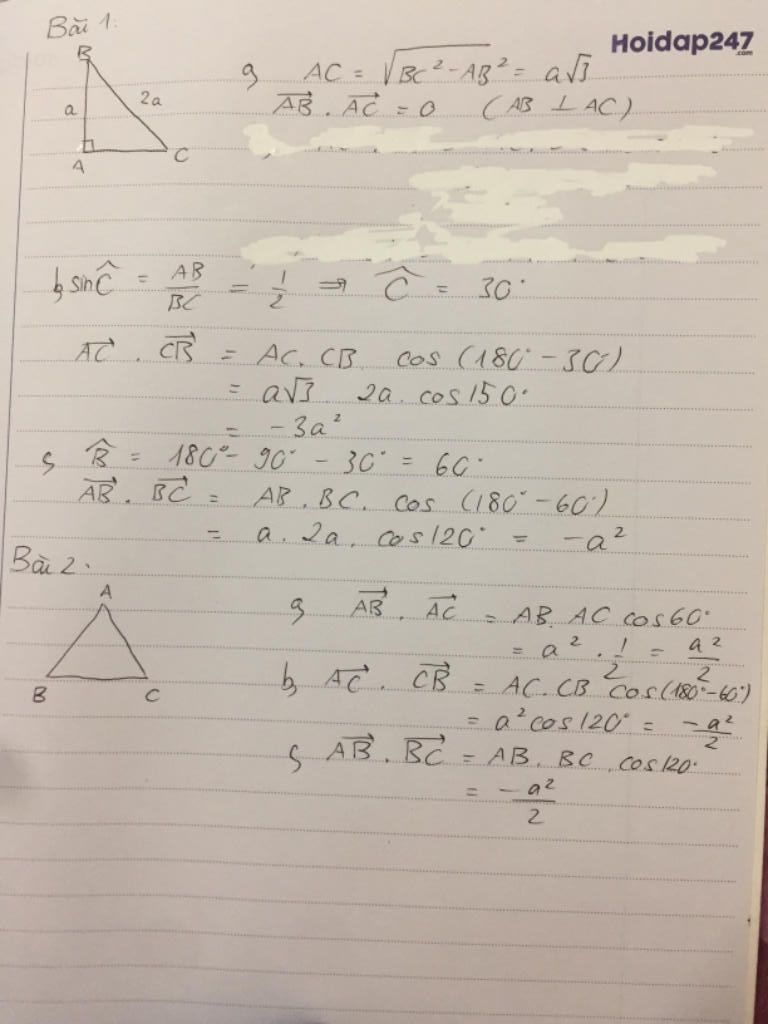 Bài 1:
Hoidap247
.com
B
a
2a
A
C
a, AC = √(BC² - AB²) = a√3
AB⃗ . AC⃗ = 0 (AB ⊥ AC)
b, sin Ĉ = AB/BC = 1/2 ⇒ Ĉ = 30°
AC⃗ . CB⃗ = AC. CB cos (180° - 30°)
= a√3 2a. cos 150°
= -3a²
c, B̂ = 180° - 90° - 30° = 60°
AB⃗ . BC⃗ = AB . BC. cos (180° - 60°)
= a. 2a. cos 120° = -a²
Bài 2.
A
B
C
a, AB⃗ . AC⃗ = AB. AC cos 60°
= a² . 1/2 = a²/2
b, AC⃗ . CB⃗ = AC. CB cos (180° - 60°)
= a² cos 120° = -a²/2
c, AB⃗ . BC⃗ = AB. BC . cos 120°
= -a²/2